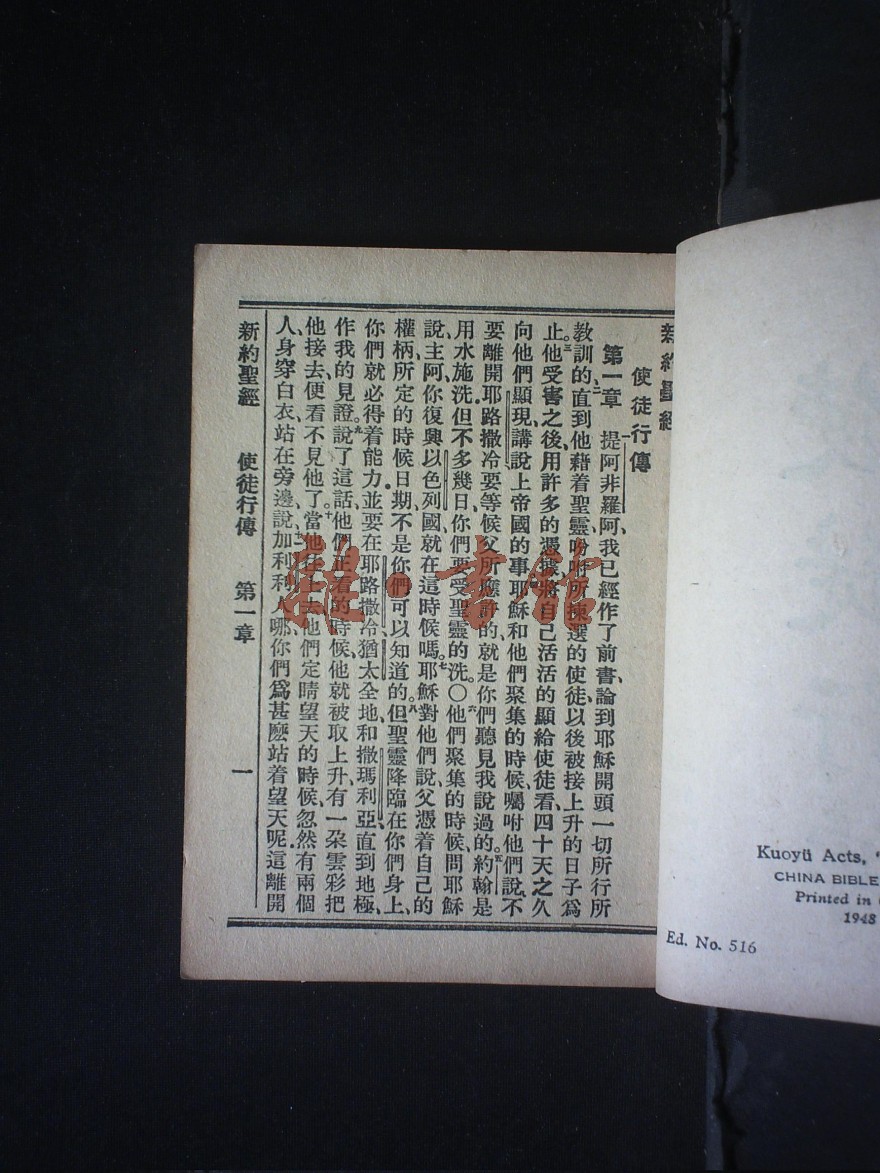 新約聖經
使徒行傳
第一章 一提阿非羅阿、我已經作了前書、論到耶穌開頭一切所行所
教訓的、二直到他藉着聖靈吩咐所揀選的使徒以後、被接上升的日子爲
止。三他受害之後、用許多的憑據、將自己活活的顯給使徒看、四十天之久
向他們顯現、講說上帝國的事。耶穌和他們聚集的時候、囑咐他們說、不
要離開耶路撒冷、要等候父所應許的、就是你們聽見我說過的。五約翰是
用水施洗、但不多幾日、你們要受聖靈的洗。〇六他們聚集的時候、問耶穌
說、主阿、你復興以色列國、就在這時候嗎。七耶穌對他們說、父憑着自己的
權柄、所定的時候日期、不是你們可以知道的。八但聖靈降臨在你們身上、
你們就必得着能力、並要在耶路撒冷、猶太全地、和撒瑪利亞、直到地極、
作我的見證。九說了這話、他們正看的時候、他就被取上升、有一朶雲彩把
他接去、便看不見他了。十當他往上去、他們定睛望天的時候、忽然有兩個
人、身穿白衣、站在旁邊、說、十一加利利人哪、你們爲甚麼站着望天呢、這離開
新約聖經 使徒行傳 第一章 一
Kuoyü Acts,
CHINA BIBLE
Printed in
1948
Ed. No. 516
雅·書館